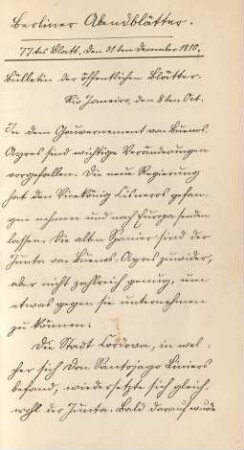 Berliner Abendblätter.
77tes Blatt. den 31ten December 1810.
Bulletin der öffentlichen Blätter.
Rio Janeiro, den 8ten Oct.
In dem Gouvernement von Buenos
Ayres sind wichtige Veränderungen
vorgefallen. Die neue Regierung
hat den Vicekönig Cisneros gefan-
gen nehmen und nach Europa senden
lassen. Die alten Spanier sind der
Junta von Buenos Ayres zuwider,
aber nicht zahlreich genug, um
etwas gegen sie unternehmen
zu können.
Die Stadt Cordova, in wel-
cher sich Don Santojago Liniers
befand, wiedersetzte sich gleich-
wohl der Junta. Bald darauf wurde